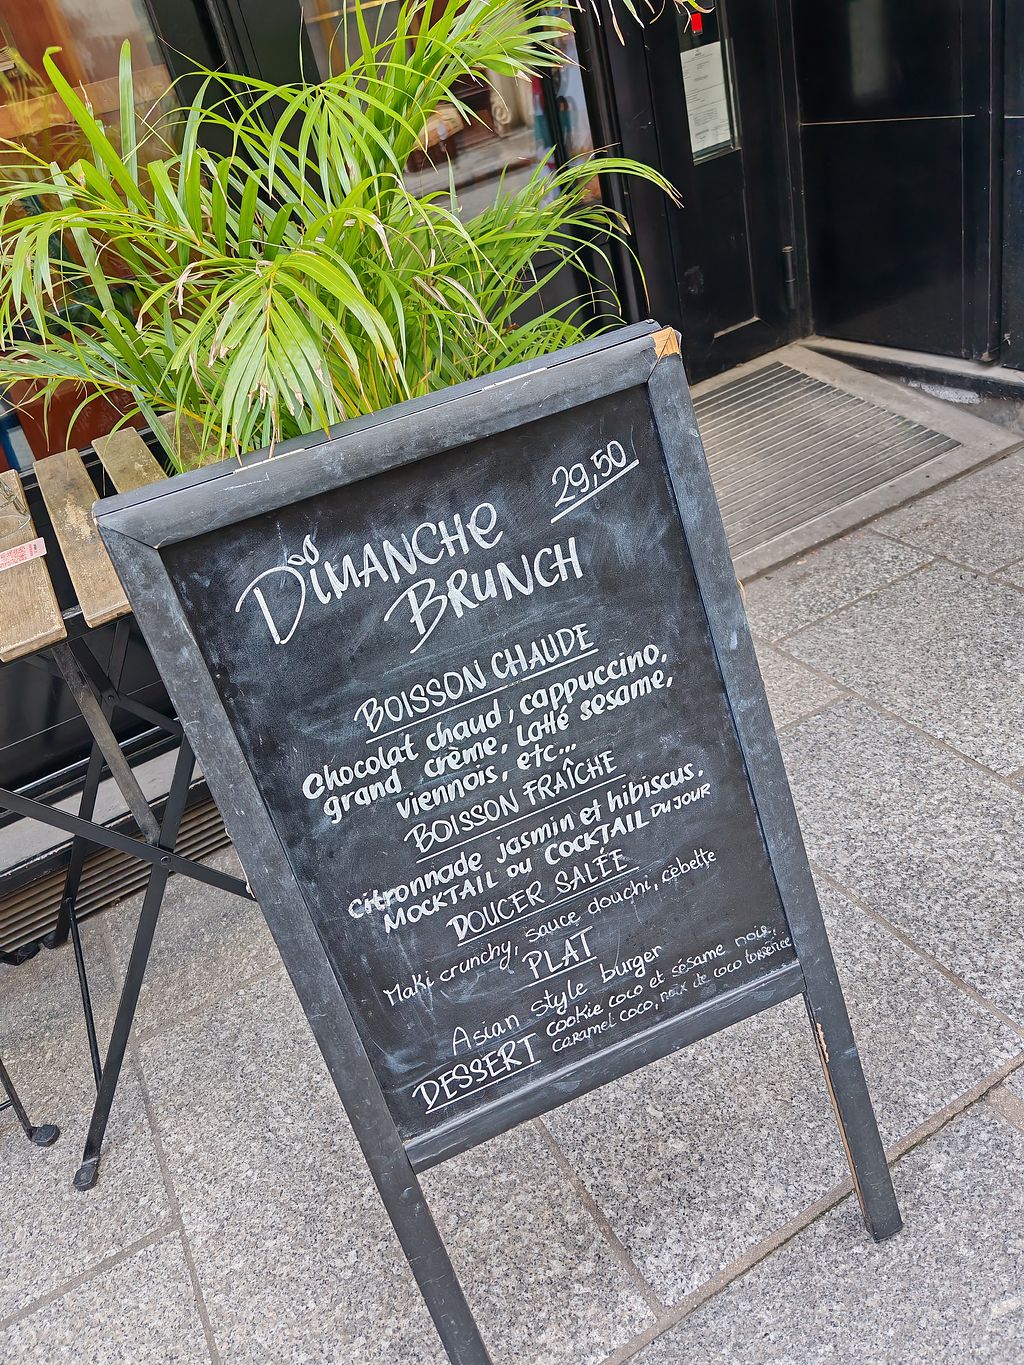 29,50
DIMANCHE
BRUNCH
BOISSON CHAUDE
Chocolat chaud, cappuccino,
grand crème, Latté sesame,
viennois, etc...
BOISSON FRAÎCHE
citronnade jasmin et hibiscus.
MOCKTAIL OU COCKTAIL DU JOUR
DOUCER SALÉE
Maki crunchy, sauce douchi, cébette
PLAT
Asian style burger
DESSERT cookie coco et sésame noir,
caramel coco, noix de coco torréfiée